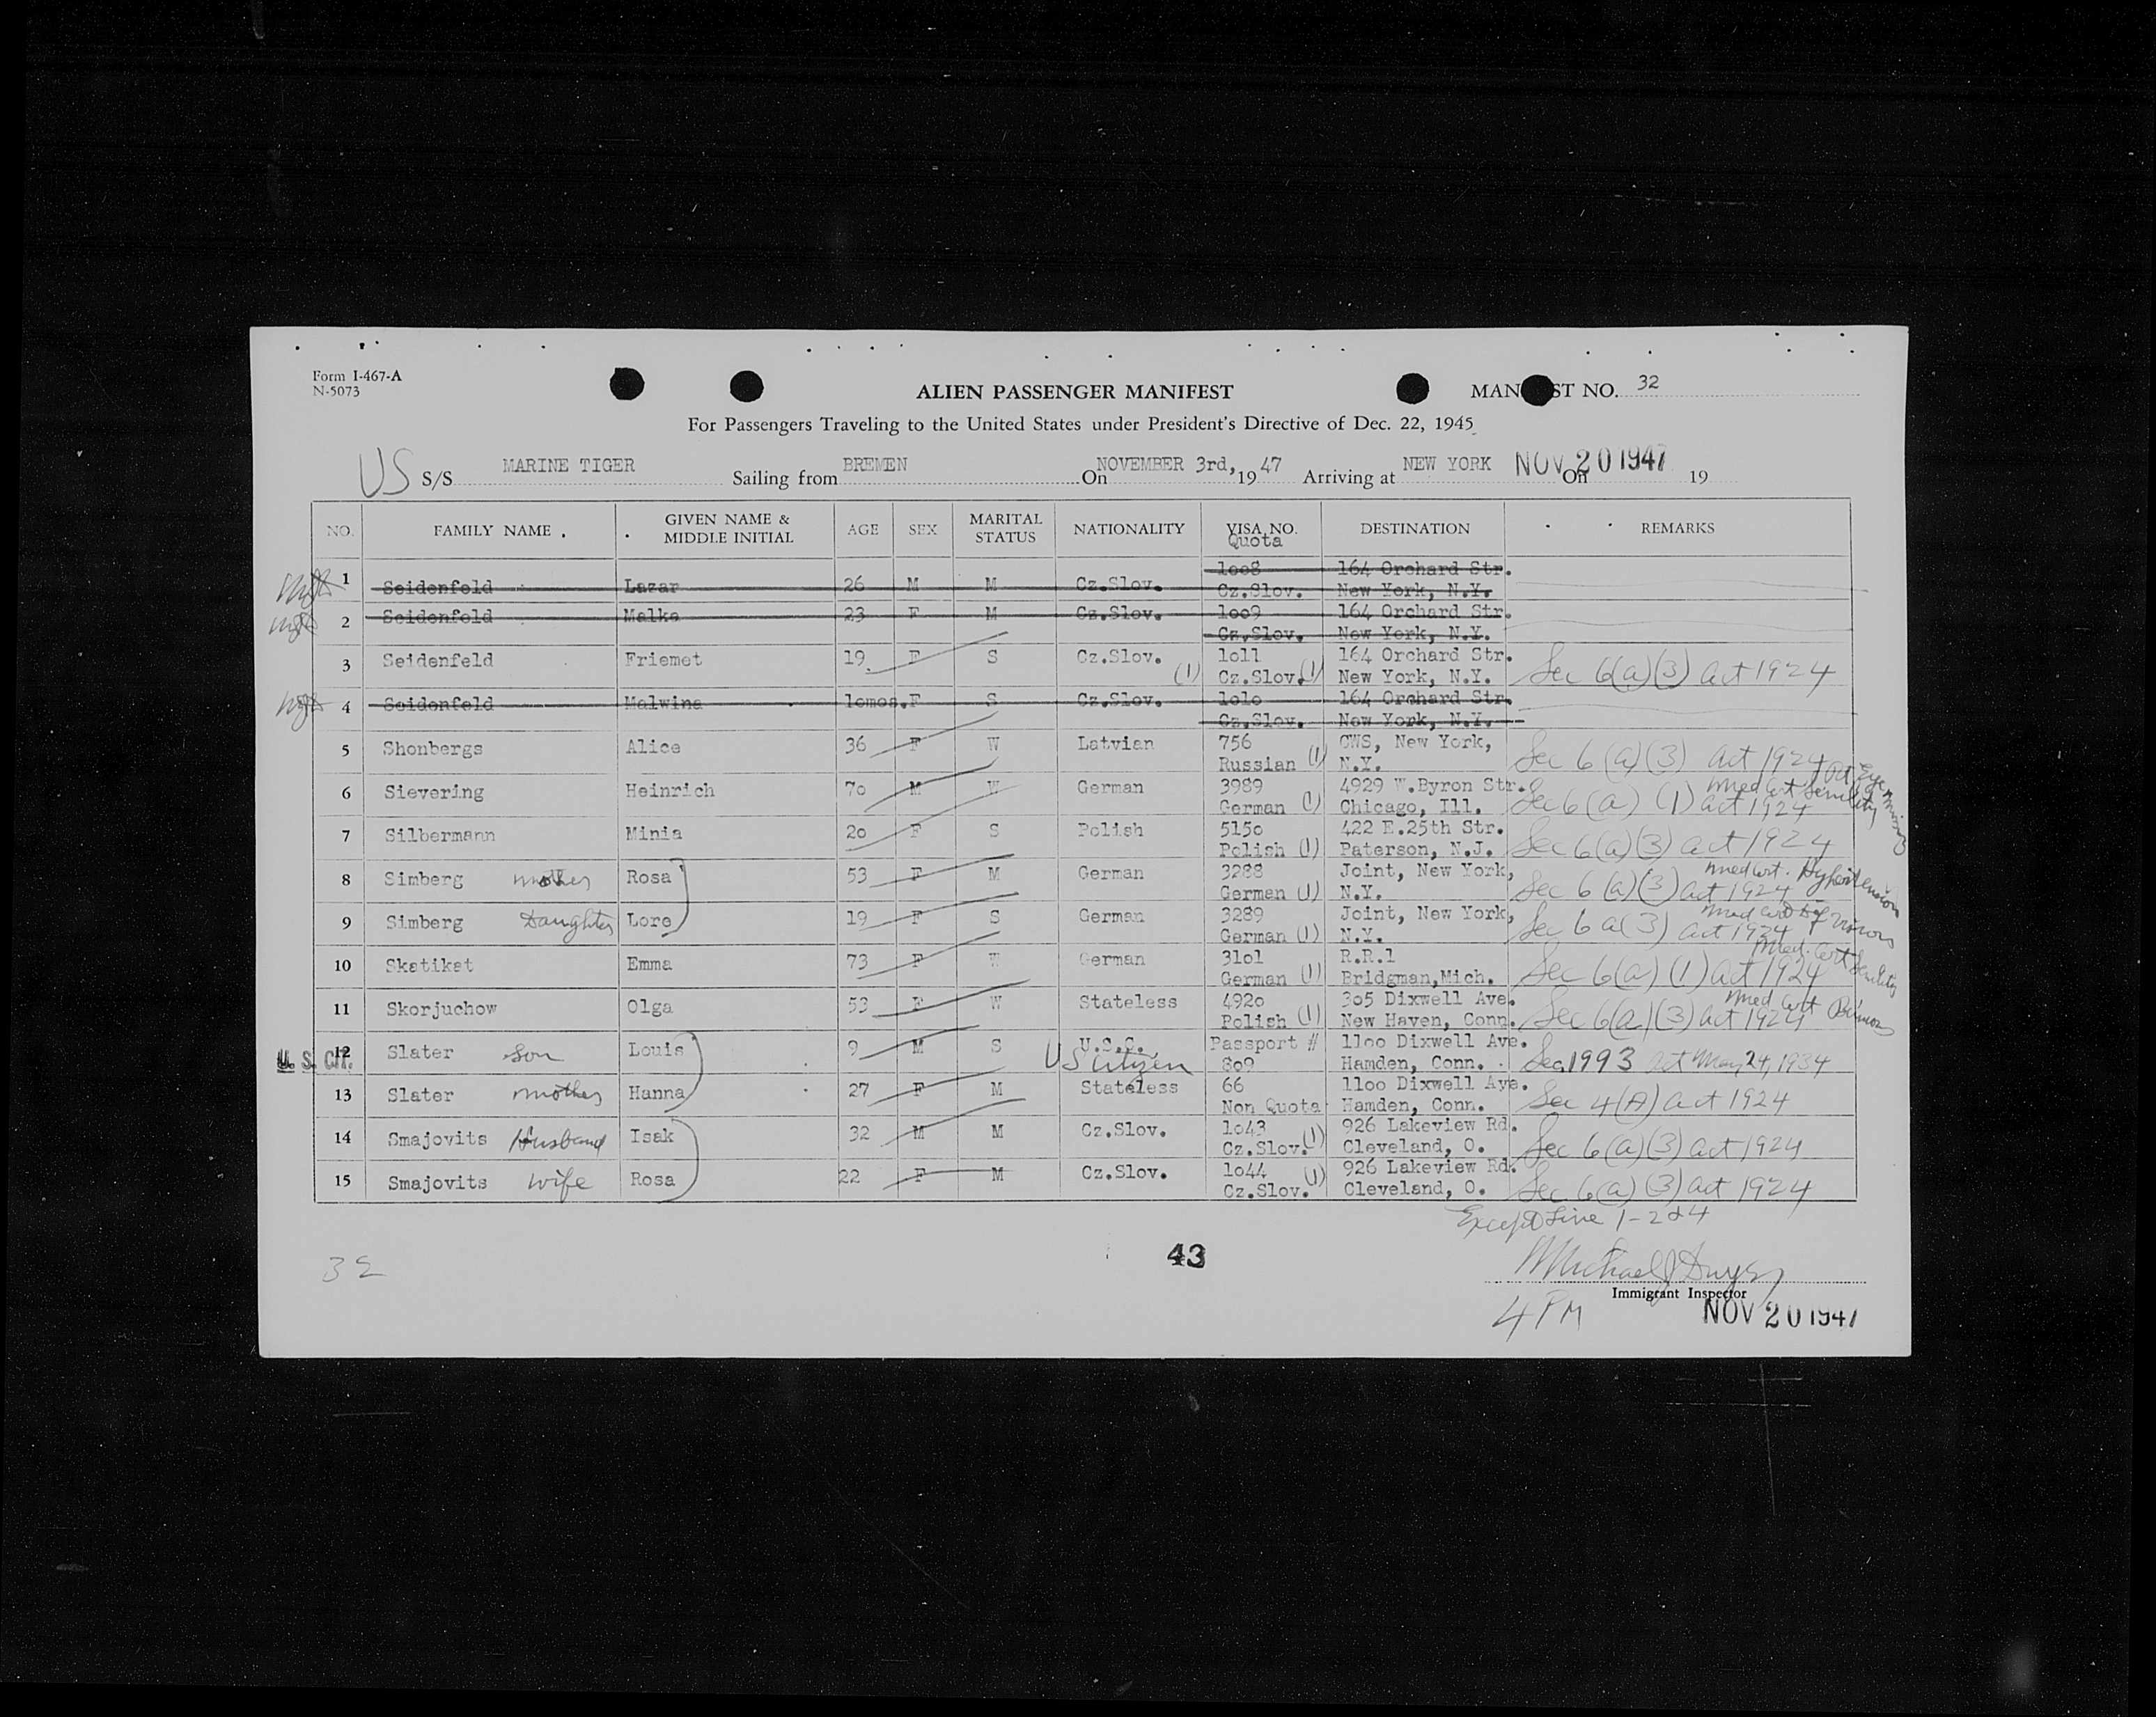 Form I-467-A
N-5073
ALIEN PASSENGER MANIFEST
MAN ST NO. 32
For Passengers Traveling to the United States under President's Directive of Dec. 22, 1945
US S/S MARINE TIGER Sailing from BREMEN On NOVEMBER 3rd, 19 47 Arriving at NEW YORK On NOV 20 1947 19
NO. FAMILY NAME GIVEN NAME & MIDDLE INITIAL AGE SEX MARITAL STATUS NATIONALITY VISA NO. Quota DESTINATION REMARKS
1 Seidenfeld Lazar 26 M M Cz.Slov. 1oo8 Cz.Slov. 164 Orchard Str. New York, N.Y.
2 Seidenfeld Malke 23 F M Cz.Slov. 1oo9 Cz.Slov. 164 Orchard Str. New York, N.Y.
3 Seidenfeld Friemet 19 F S Cz.Slov. (1) 1o11 Cz.Slov. (1) 164 Orchard Str. New York, N.Y. Sec 6(a)(3) act 1924
4 Seidenfeld Malwina 1omos. F S Cz.Slov. 1o1o Cz.Slov. 164 Orchard Str. New York, N.Y.
5 Shonbergs Alice 36 F W Latvian 756 Russian (1) CWS, New York, N.Y. Sec 6(a)(3) act 1924
6 Sievering Heinrich 7o M W German 3989 German (1) 4929 W.Byron Str. Chicago, Ill. Sec 6(a)(1) act 1924 Med Cert Senility Rt. Eye missing
7 Silbermann Minia 2o F S Polish 515o Polish (1) 422 E.25th Str. Paterson, N.J. Sec 6(a)(3) act 1924
8 Simberg mother Rosa 53 F M German 3288 German (1) Joint, New York, N.Y. Sec 6(a)(3) act 1924 Med Cert. Hypertension
9 Simberg Daughter Lore 19 F S German 3289 German (1) Joint, New York, N.Y. Sec 6 a(3) act 1924 Med Cert Def Vision
10 Skatikat Emma 73 F W German 31o1 German (1) R.R.1 Bridgman,Mich. Sec 6(a)(1) act 1924 Med. Cert Senility
11 Skorjuchow Olga 53 F W Stateless 492o Polish (1) 3o5 Dixwell Ave. New Haven, Conn. Sec 6(a)(3) act 1924 Med Cert
U. S. CIT. 12 Slater Son Louis 9 M S U.S.C. US Citizen Passport # 8o9 11oo Dixwell Ave. Hamden, Conn. Sec. 1993 act May 24, 1934
13 Slater mother Hanna 27 F M Stateless 66 Non Quota 11oo Dixwell Ave. Hamden, Conn. Sec 4(A) act 1924
14 Smajovits Husband Isak 32 M M Cz.Slov. 1o43 Cz.Slov. (1) 926 Lakeview Rd. Cleveland, O. Sec 6(a)(3) act 1924
15 Smajovits Wife Rosa 22 F M Cz.Slov. 1o44 Cz.Slov. (1) 926 Lakeview Rd. Cleveland, O. Sec 6(a)(3) act 1924
Except Line 1-2 & 4
32
43
Michael J Dwyer
Immigrant Inspector
4 PM NOV 20 1947